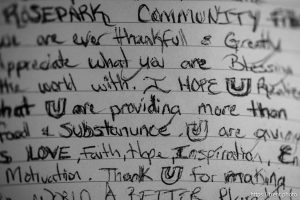 ROSEPARK COMMUNITY
we are ever thankful & Greatly
Appreciate what you are Blessing
the world with. I HOPE U Realize
that U are providing more than
food & Substanunce, U are giving
us LOVE, Faith, Hope, Inspiration, &
Motivation. Thank U for making
WORLD A BETTER